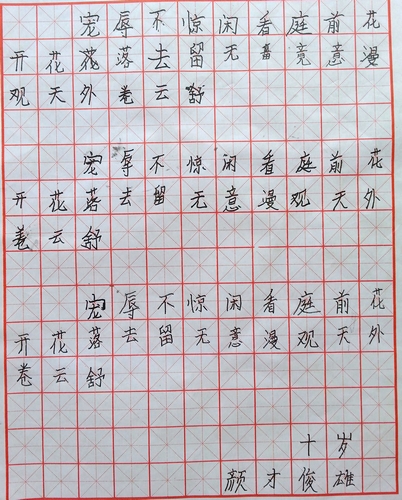 宠辱不惊闲看庭前花
开花花落去留无竟意漫
观天外卷云舒
宠辱不惊闲看庭前花
开花落去留无意漫观天外
卷云舒
宠辱不惊闲看庭前花
开花落去留无意漫观天外
卷云舒
十岁
颜才俊雄